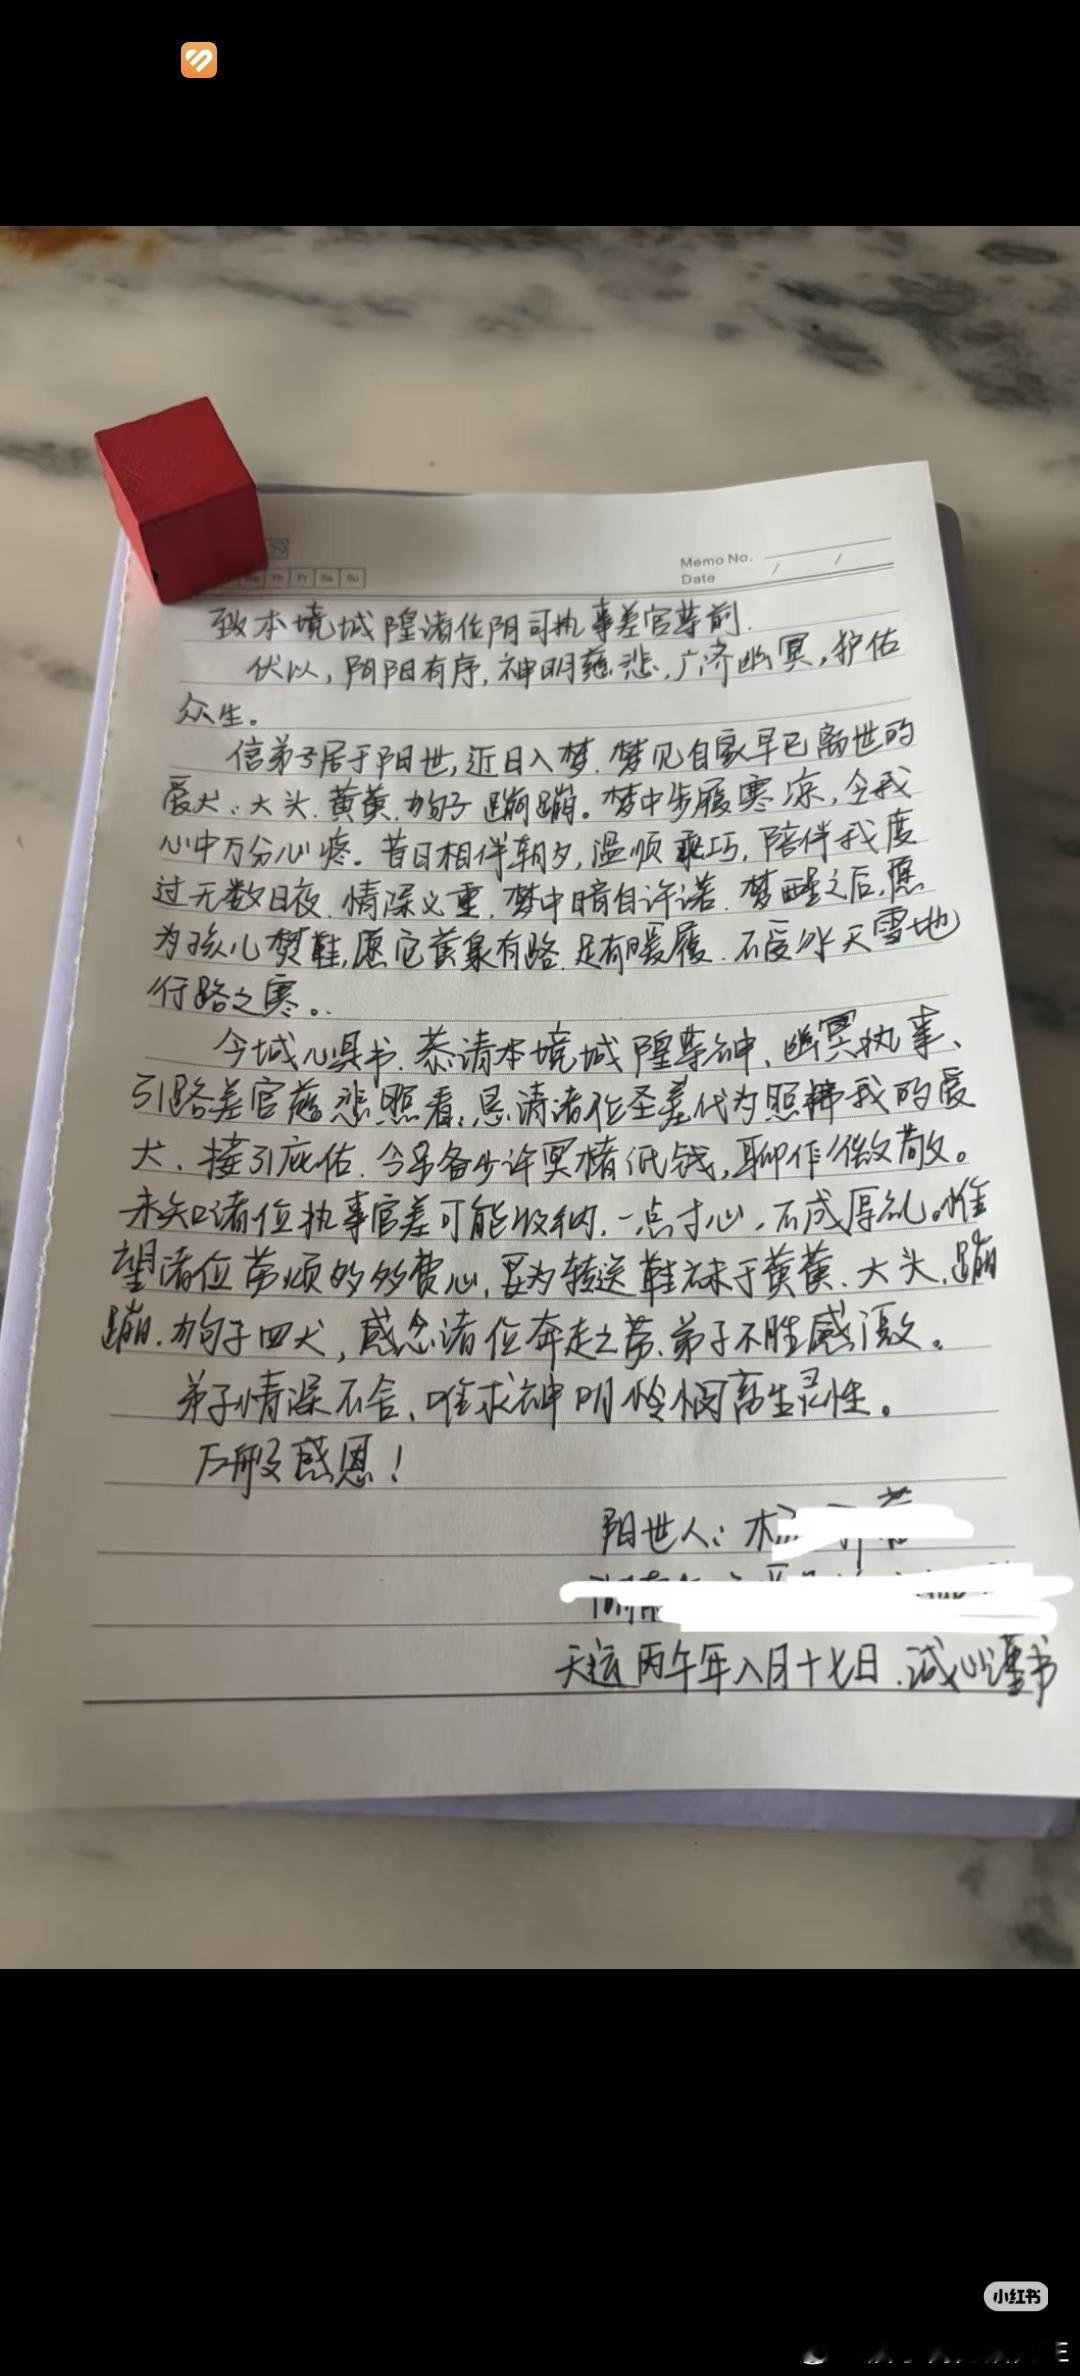 Memo No.
Date / /
Th Fr Sa Su
致本境城隍诸位阴司执事差官尊前.
伏以,阴阳有序,神明慈悲,广济幽冥,护佑
众生。
信弟子居于阳世,近日入梦.梦见自家早已离世的
爱犬:大头.黄黄.狗子 蹦蹦。梦中步履寒凉,令我
心中万分心疼。昔日相伴朝夕,温顺乖巧,陪伴我度
过无数日夜.情深义重.梦中暗自许诺.梦醒之后,愿
为孩儿焚鞋,愿它黄泉有路.足有暖履.不受冰天雪地
行路之寒。
今诚心具书.恭请本境城隍尊神、幽冥执事、
引路差官慈悲照看,恳请诸位圣差代为照拂我的爱
犬、接引庇佑.今另备少许冥楮纸钱,聊作微敬。
未知诸位执事官差可能收纳.一点寸心,不成厚礼。惟
望诸位劳烦多费心,妥为转送鞋袜于黄黄、大头,蹦
蹦.狗子四犬,感念诸位奔走之劳.弟子不胜感激。
弟子情深不舍、唯求神明怜悯畜生灵性。
万般感恩!
阳世人:
天运丙午年八月十七日.诚心谨书
小红书